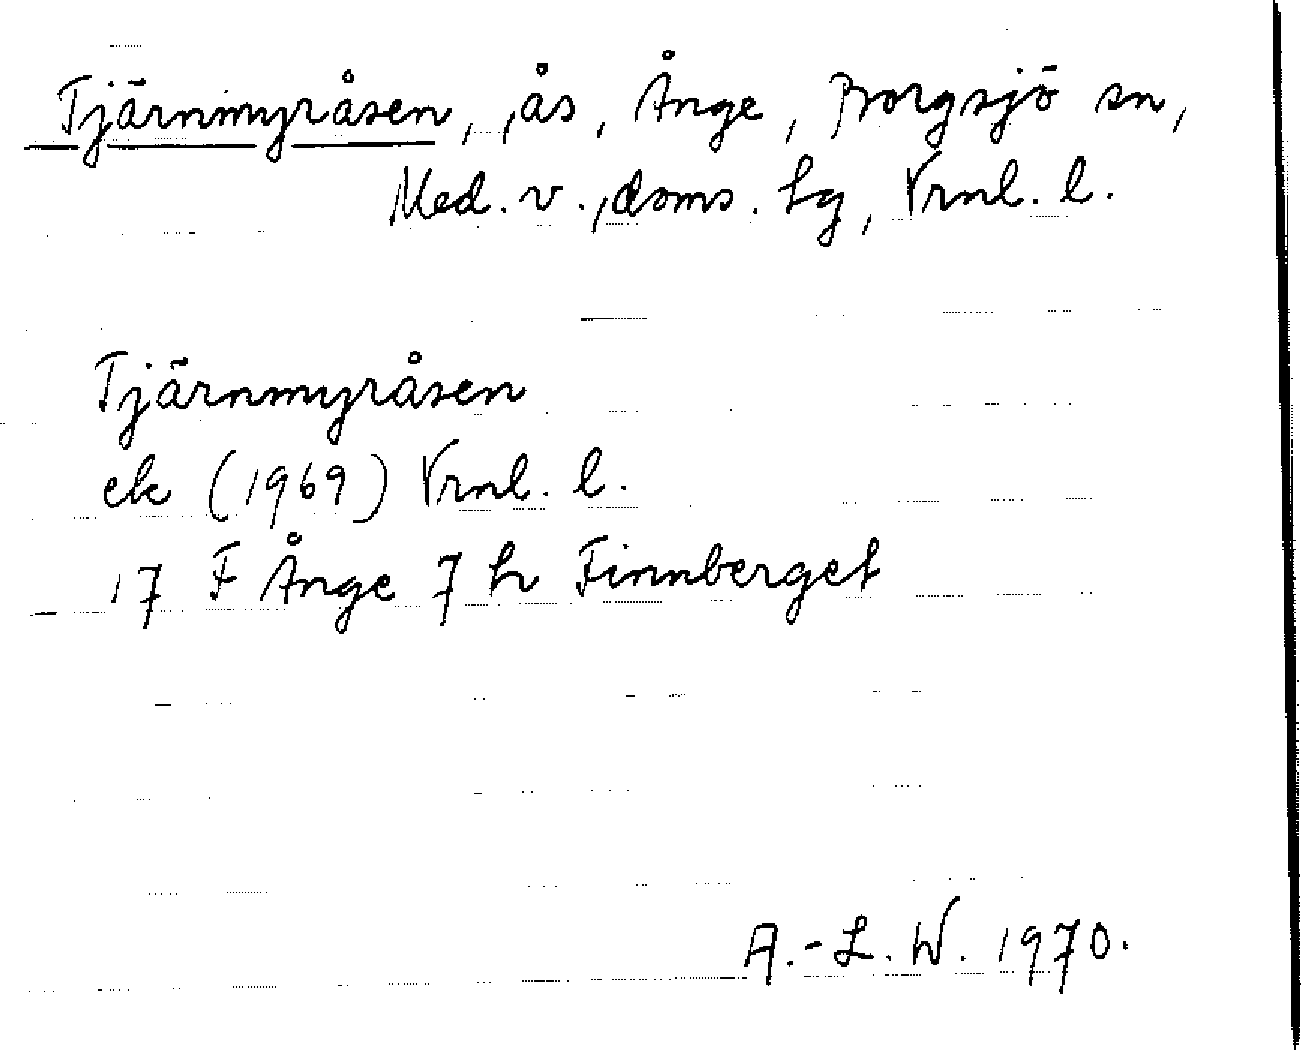 Tjärnmyråsen, ås, Ånge, Borgsjö sn,
Med. v., doms. lg, Vrnl. l.
Tjärnmyråsen
ek (1969) Vrnl. l.
17 F Ånge 7 h Finnberget
A.-L. W. 1970.